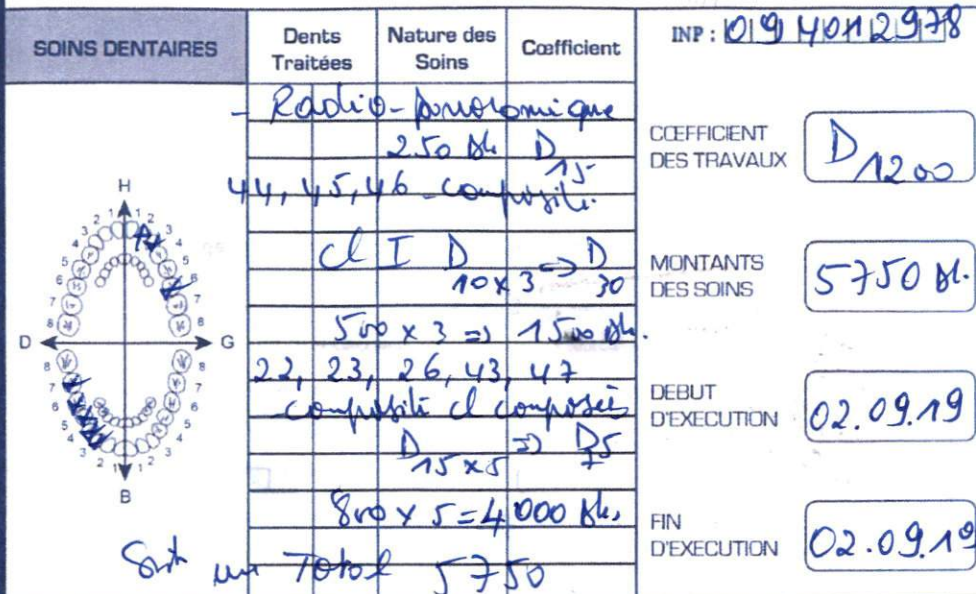 SOINS DENTAIRES
Dents Traitées
Nature des Soins
Cœfficient
- Radio-panoramique
250 Dh D 15
44, 45, 46 composite
cl I D 10 x 3 => D 30
500 x 3 => 1500 Dh.
22, 23, 26, 43, 47
composite cl composées
D 15 x 5 => D 75
800 x 5 = 4000 Dh.
Soit un Total 5750
H
D G
B
INP : 094012978
CŒFFICIENT DES TRAVAUX
D 1200
MONTANTS DES SOINS
5750 Dh.
DEBUT D'EXECUTION
02.09.19
FIN D'EXECUTION
02.09.19